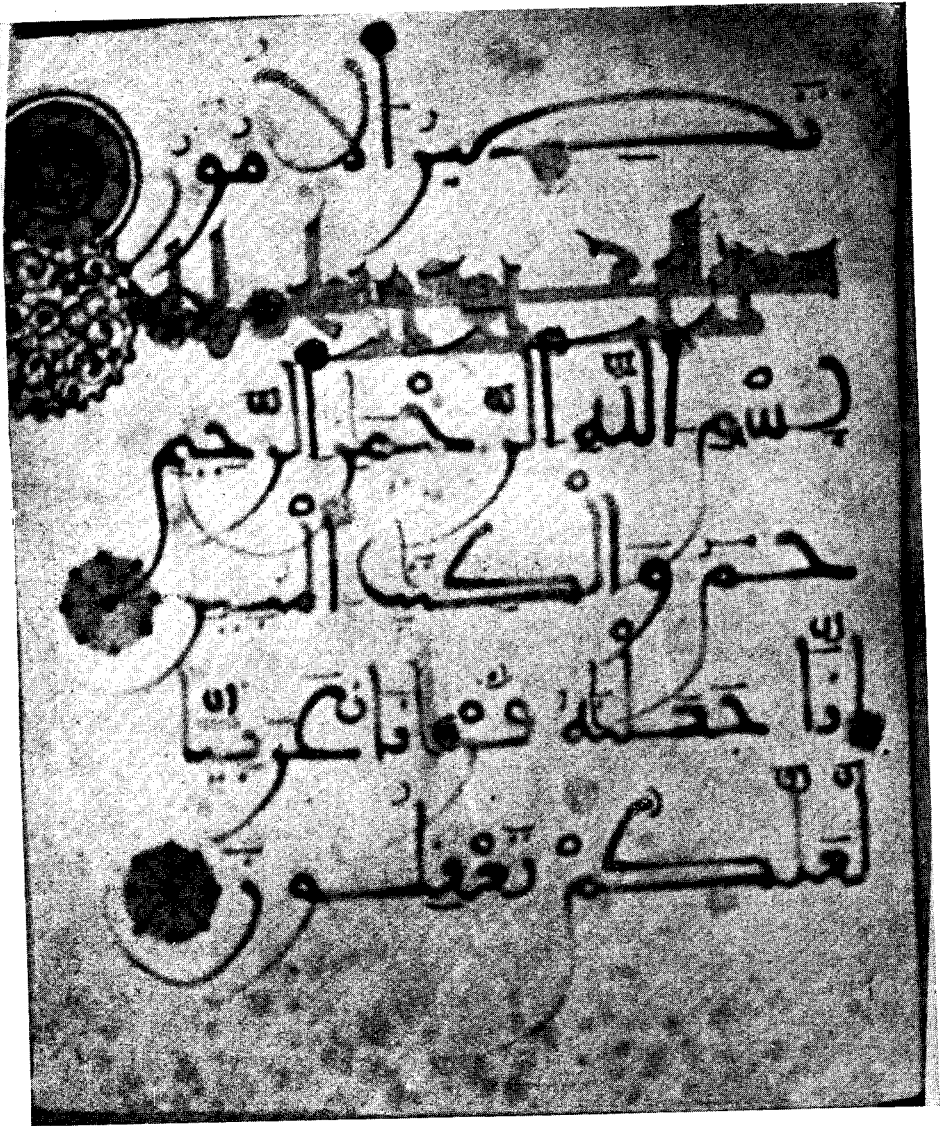 تَصِيرُ الْأُمُورُ
بِسْمِ اللَّهِ الرَّحْمَنِ الرَّحِيمِ
حمَ وَالْكِتَبِ الْمُبِينِ
إِنَّا جَعَلْنَهُ قُرْانًا عَرَبِيًّا
لَّعَلَّكُمْ تَعْقِلُونَ